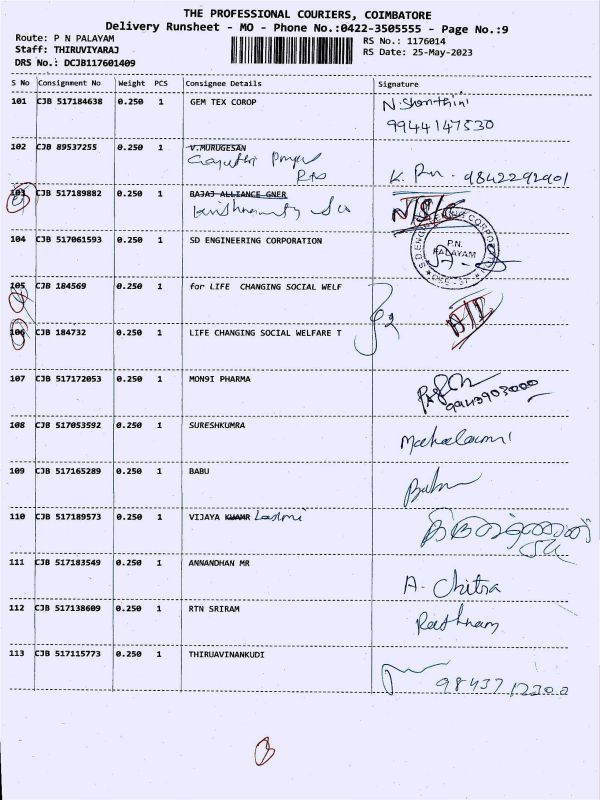 THE PROFESSIONAL COURIERS, COIMBATORE
Delivery Runsheet - MO - Phone No.:0422-3505555 - Page No.:9
Route: P N PALAYAM
RS No.: 1176014
Staff: THIRUVIYARAJ
RS Date: 25-May-2023
DRS No.: DCJB117601409
S No Consignment No Weight PCS Consignee Details Signature
101 CJB 517184638 0.250 1 GEM TEX COROP N. Shanthini
9944147530
102 CJB 89537255 0.250 1 V.MURUGESAN
K. 9842292901
103 CJB 517189882 0.250 1 BAJAJ ALLIANCE GNER
104 CJB 517061593 0.250 1 SD ENGINEERING CORPORATION
P.N.
PALAYAM
105 CJB 184569 0.250 1 for LIFE CHANGING SOCIAL WELF
106 CJB 184732 0.250 1 LIFE CHANGING SOCIAL WELFARE T
107 CJB 517172053 0.250 1 MON9I PHARMA
9943903000
108 CJB 517053592 0.250 1 SURESHKUMRA Mahalaxmi
109 CJB 517165289 0.250 1 BABU Babu
110 CJB 517189573 0.250 1 VIJAYA KUAMR Laxmi
111 CJB 517183549 0.250 1 ANNANDHAN MR A. Chitra
112 CJB 517138609 0.250 1 RTN SRIRAM Rathnam
113 CJB 517115773 0.250 1 THIRUAVINANKUDI